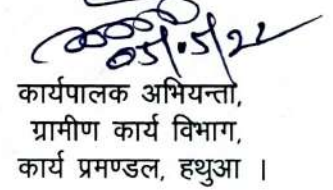 05/5/22
कार्यपालक अभियन्ता,
ग्रामीण कार्य विभाग,
कार्य प्रमण्डल, हथुआ ।